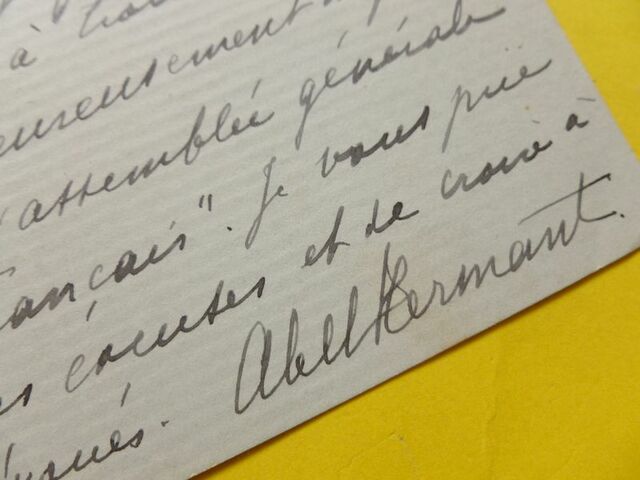 à
eureusement
l'assemblée générale
français". Je vous prie
es écoutes et de croire à
Abel Hermant.